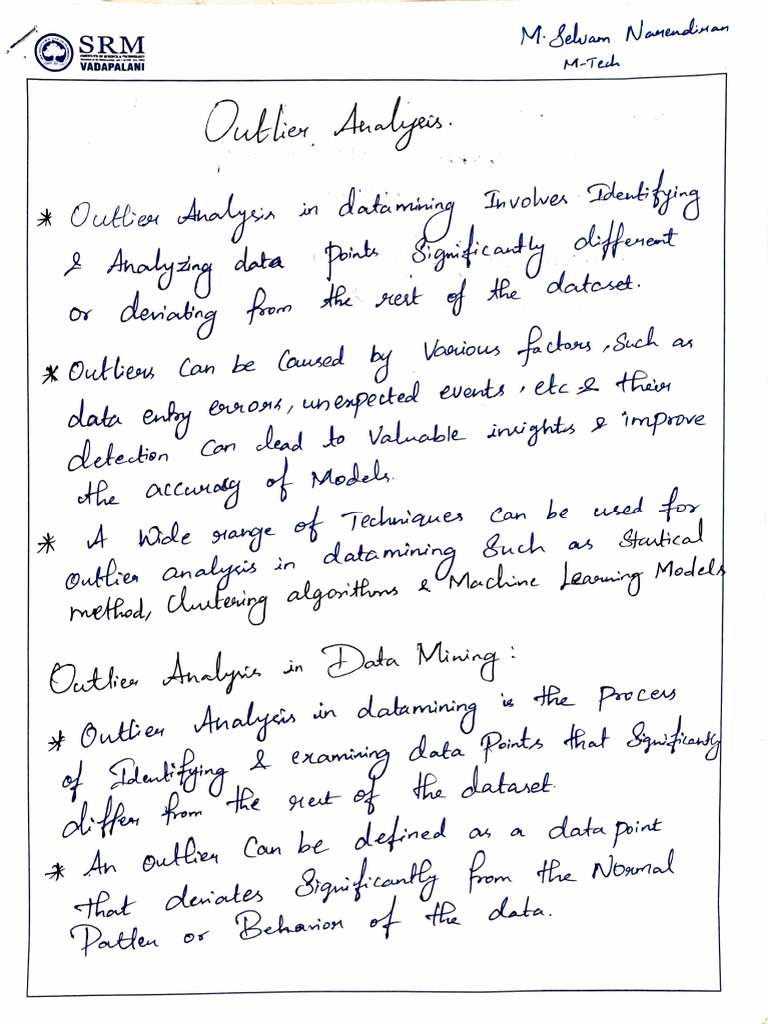 SRM
INSTITUTE OF SCIENCE & TECHNOLOGY
VADAPALANI
M. Selvam Narendiran
M-Tech
Outlier Analysis.
* Outlier Analysis in datamining Involves Identifying
& Analyzing data points Significantly different
or deviating from the rest of the dataset.
* Outliers Can be Caused by Various factors, Such as
data entry errors, unexpected events, etc & their
detection Can lead to Valuable insights & improve
the accuracy of Models.
* A Wide range of Techniques can be used for
outlier analysis in datamining Such as Stastical
method, Clustering algorithms & Machine Learning Models
Outlier Analysis in Data Mining :
* Outlier Analysis in datamining is the process
of Identifying & examining data Points that Significantly
differ from the rest of the dataset.
* An outlier Can be defined as a data point
that deviates Significantly from the Normal
Patten or Behavior of the data.